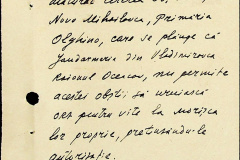 Novo Mihailovca, primăria
Olghino, care se plînge că
Jandarmeria din Vladimirovca
raionul Oceacov, nu permite
acestei obști să urmeze
ors pentru vite la morișca
lor proprie, pretinzându-le
autorizație.